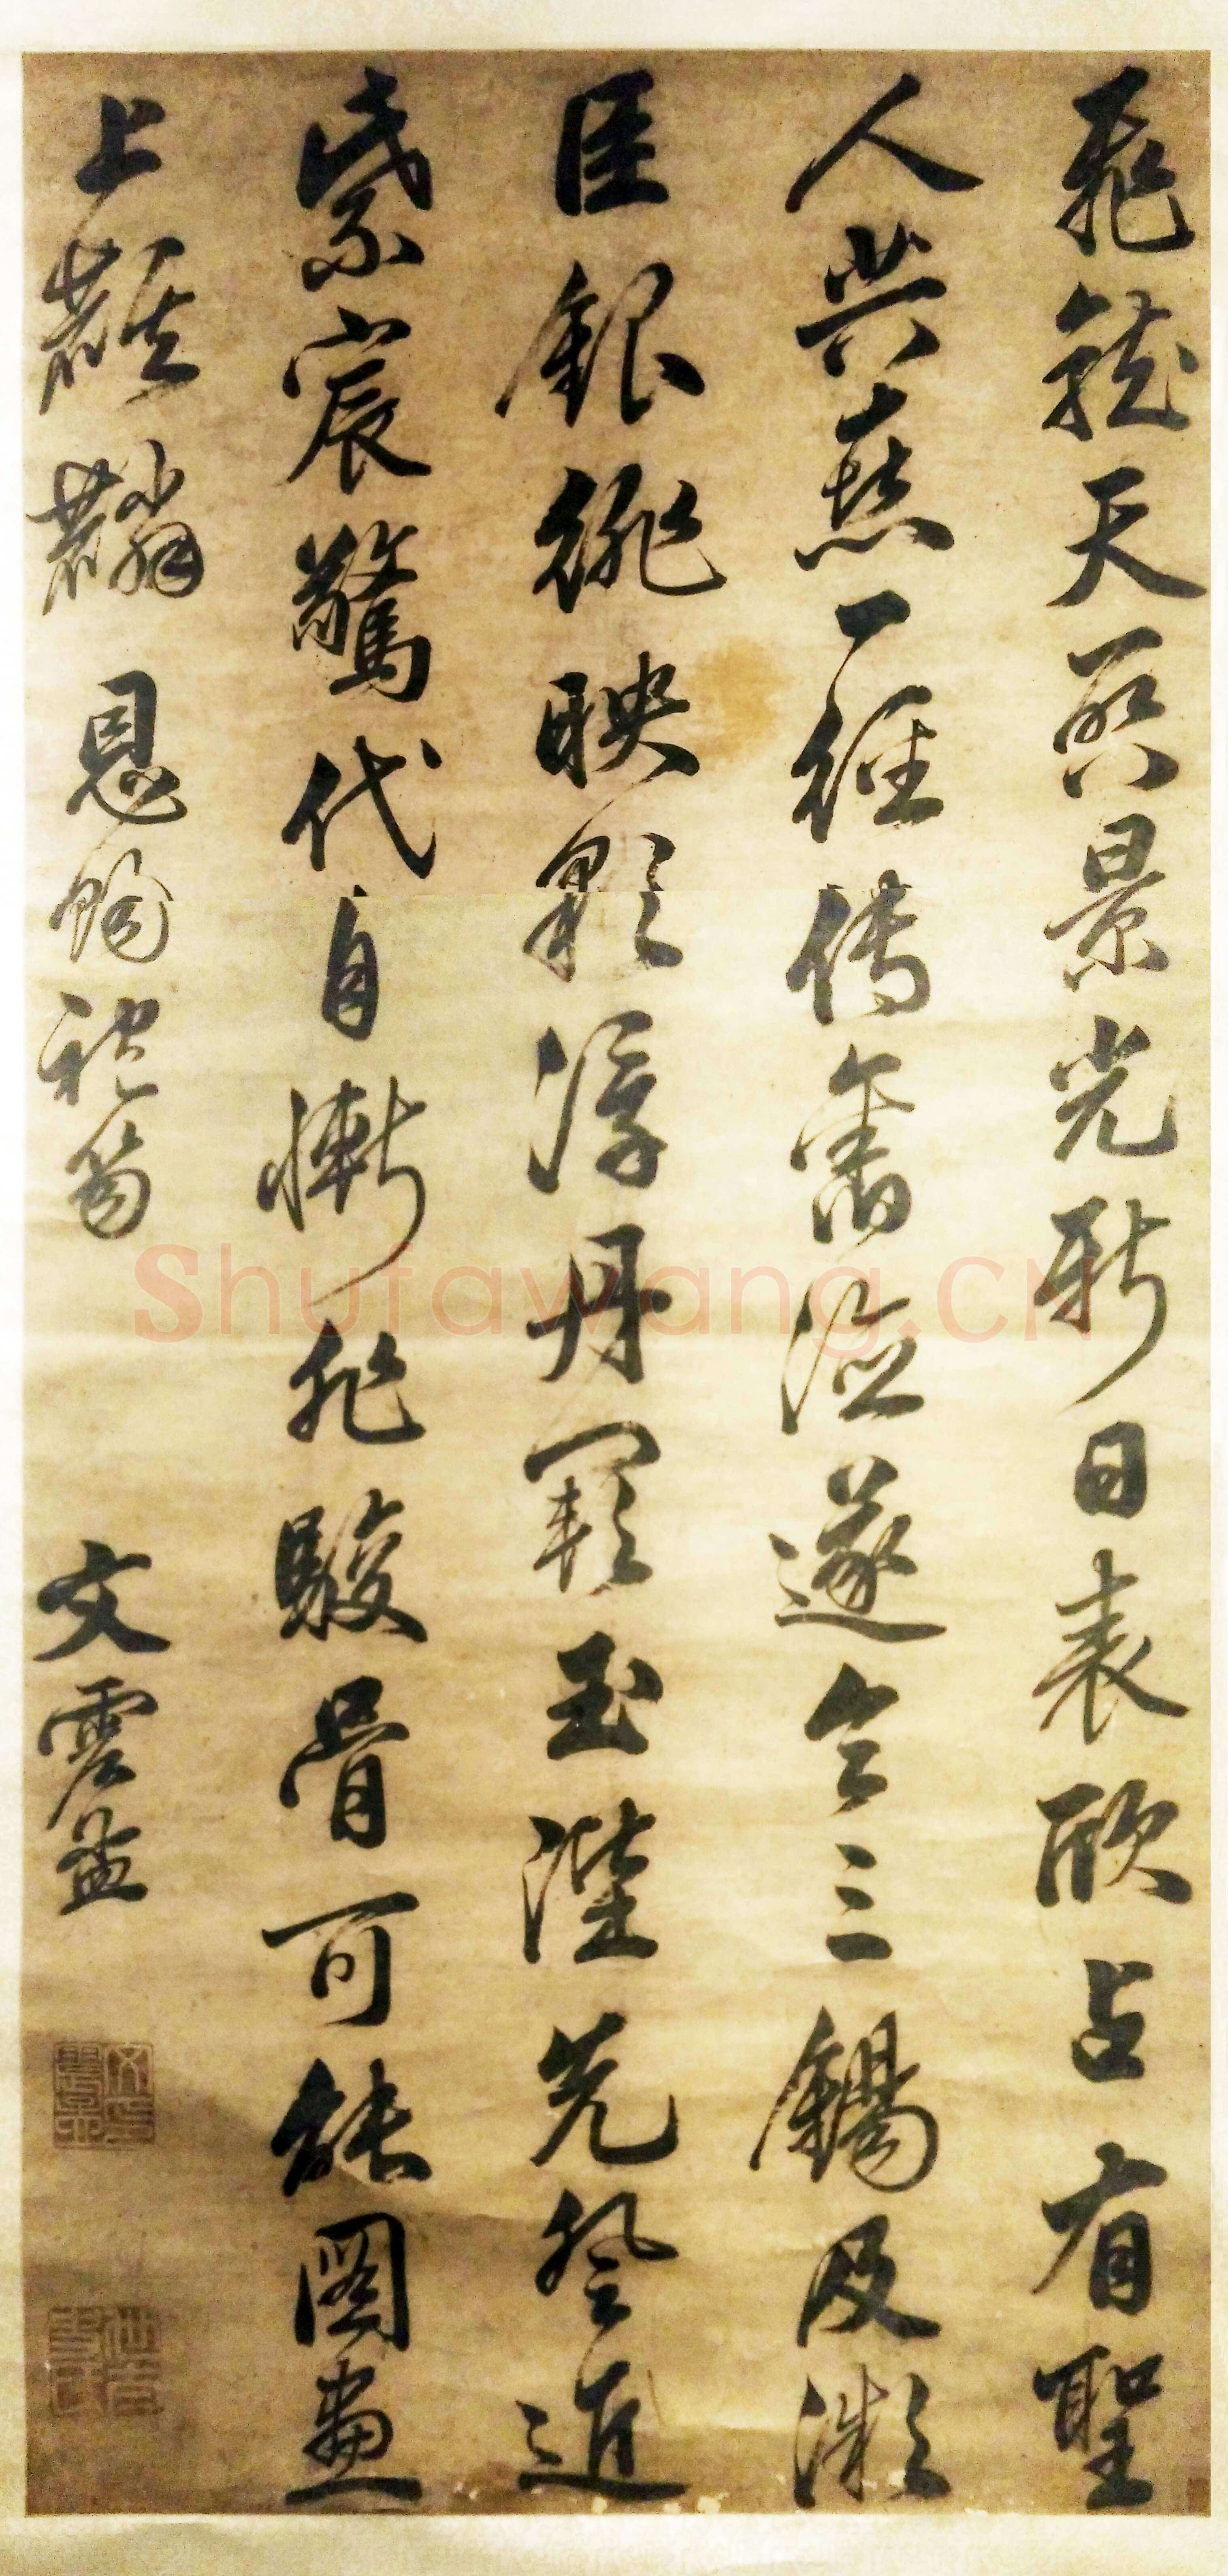 飛龍天啓景光新日表欣占有聖
人共一經傳舊遂令三錫及微
臣銀緋映彩浮丹闕玉陛先登近
紫宸驚代自慚非駿骨可能圖畫
上麒麟 恩綸 文震孟
Shufawang.CN